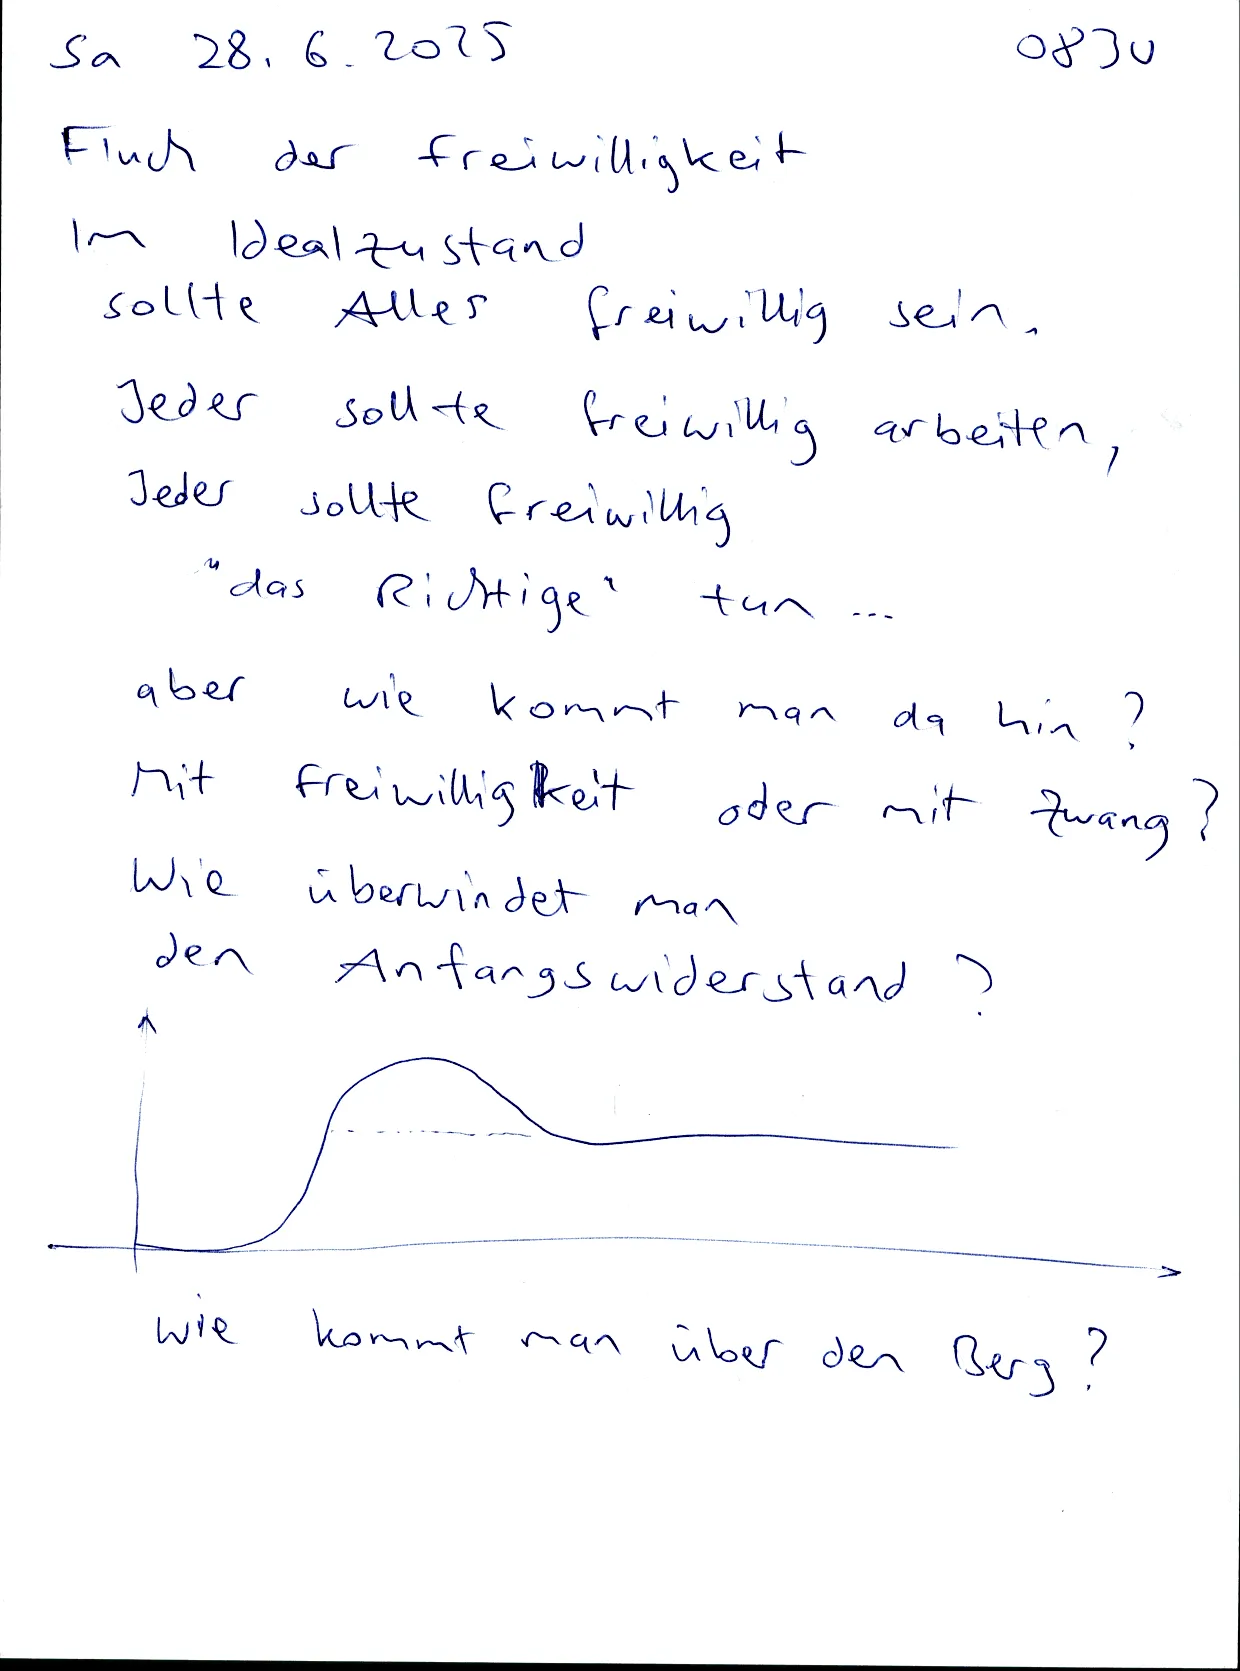 Sa 28.6.2025 0830
Fluch der freiwilligkeit
Im Idealzustand
sollte Alles freiwillig sein.
Jeder sollte freiwillig arbeiten,
Jeder sollte freiwillig
"das Richtige" tun ...
aber wie kommt man da hin?
Mit freiwilligkeit oder mit Zwang?
Wie überwindet man
den Anfangswiderstand?
wie kommt man über den Berg?